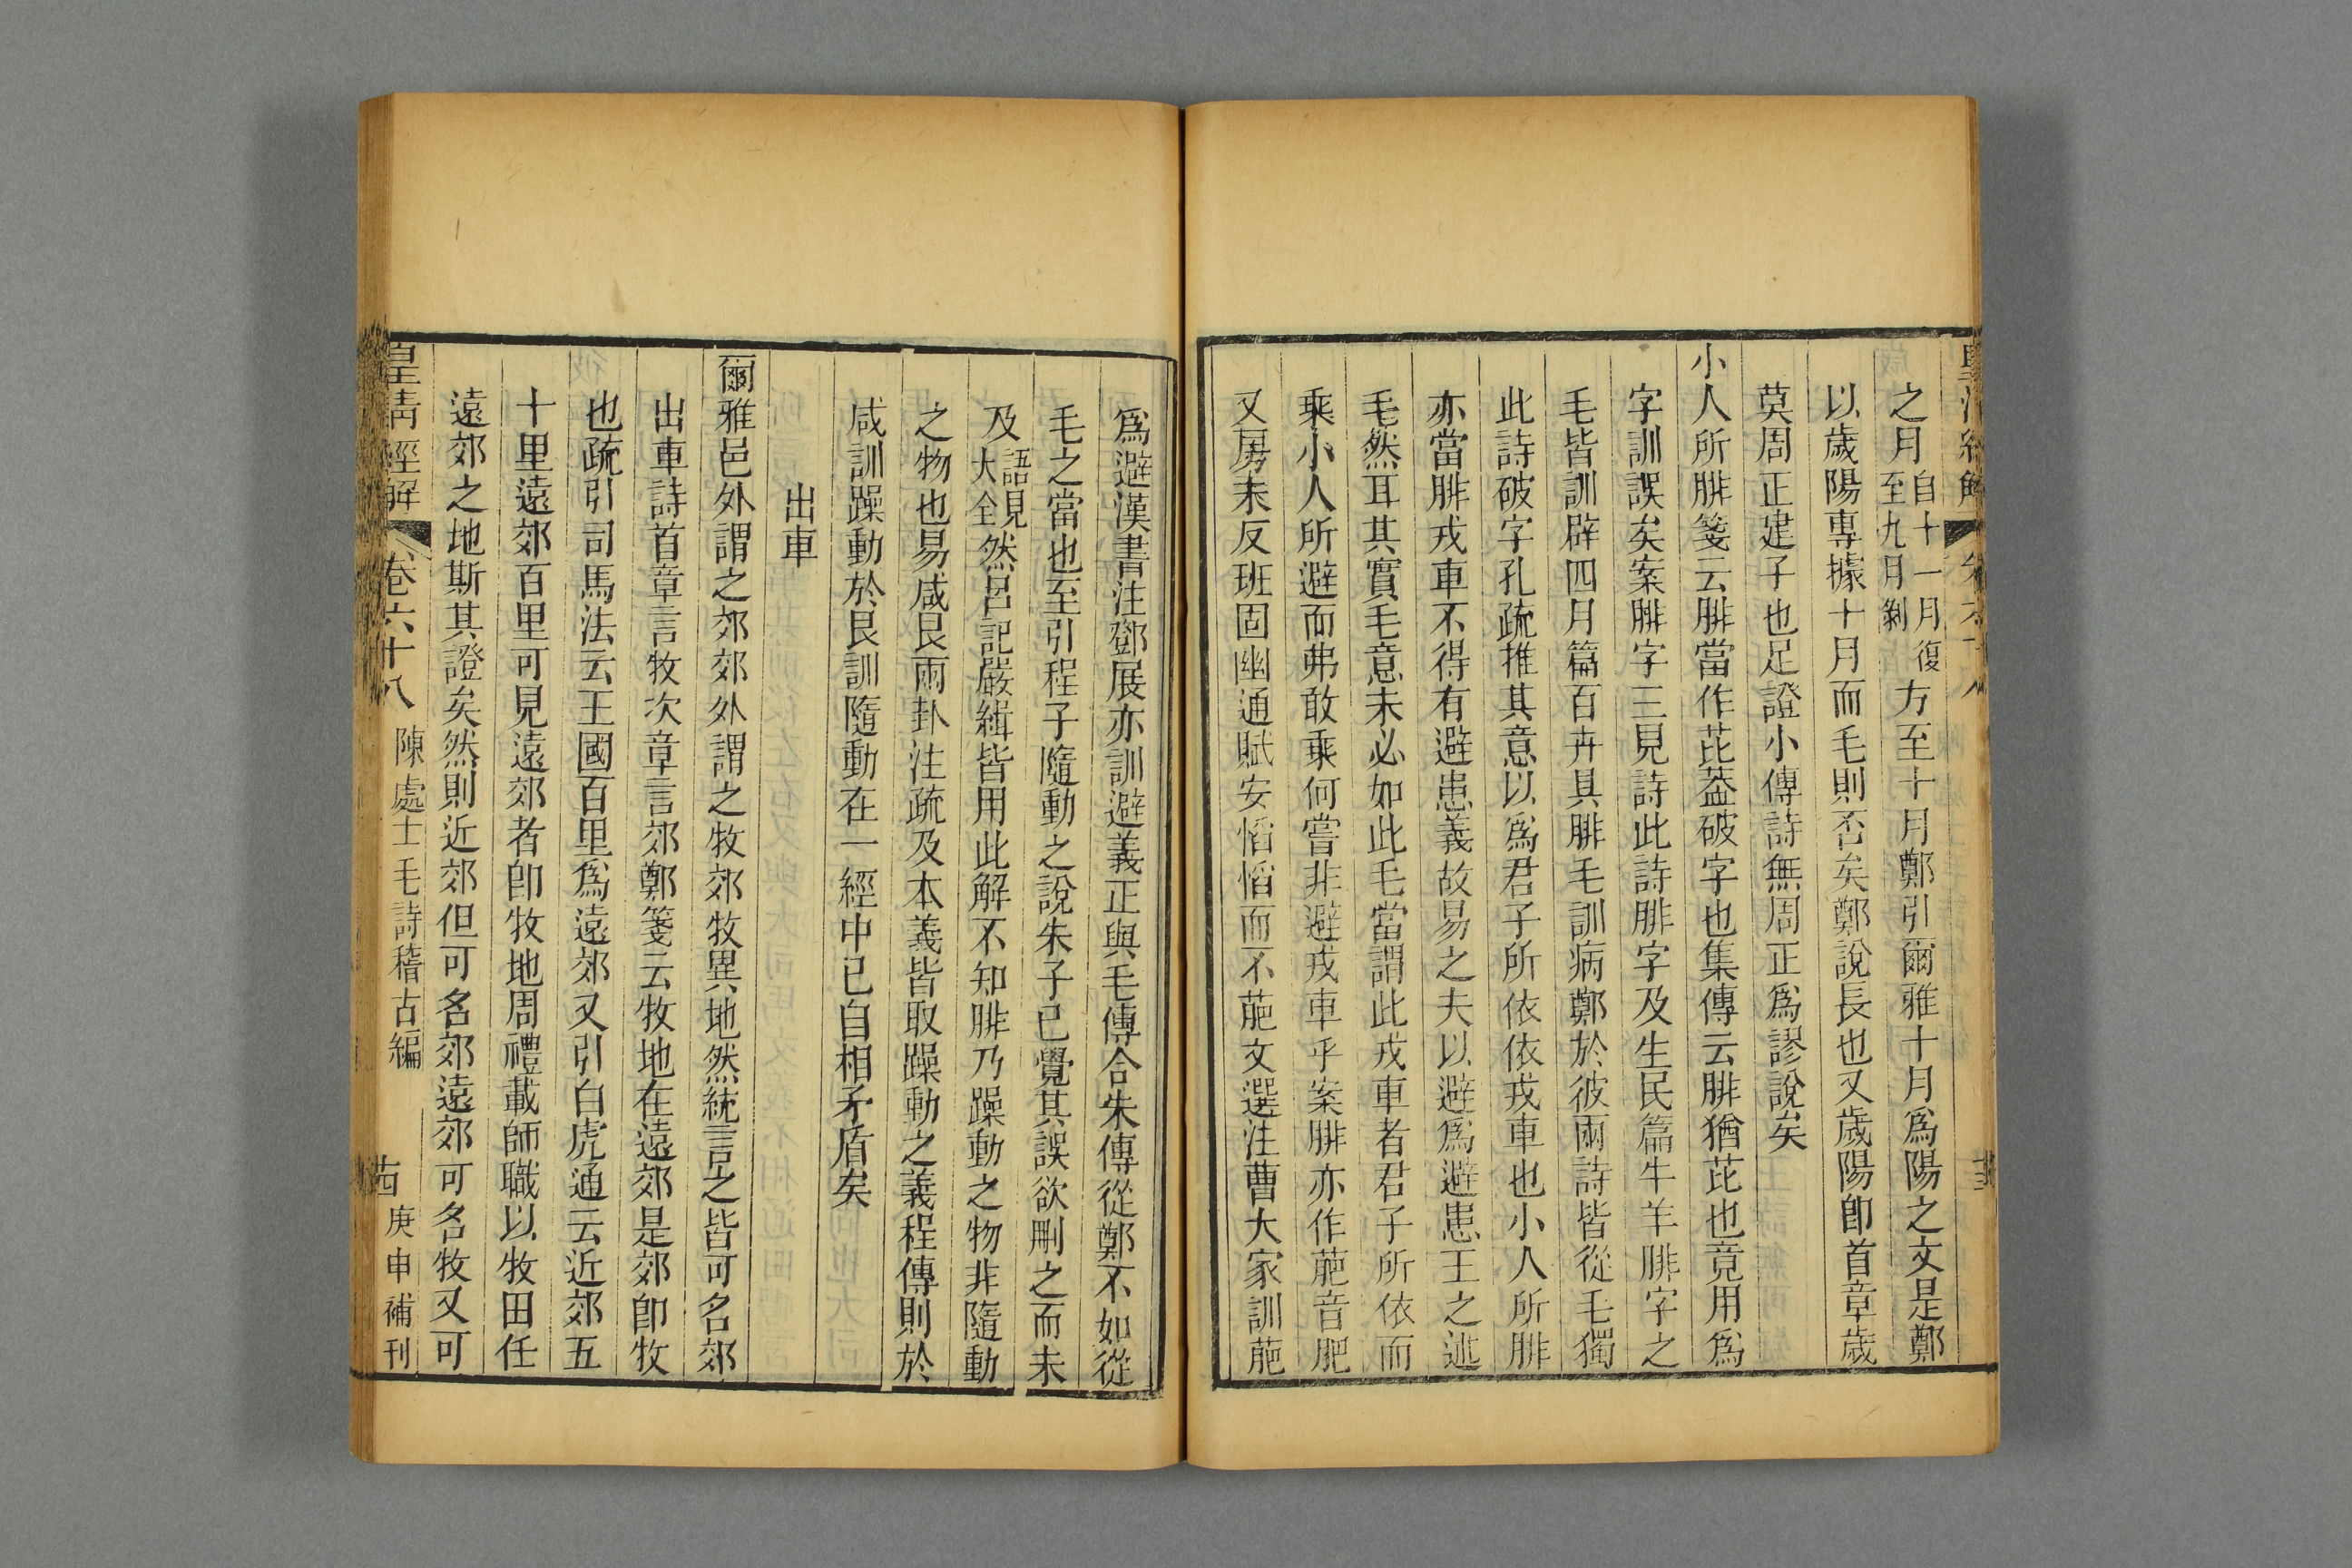 皇清經解
卷六十八
十三
之月自十一月復至九月剝方至十月鄭引爾雅十月爲陽之文是鄭
以歲陽專據十月而毛則否矣鄭說長也又歲陽卽首章歲
莫周正建子也足證小傳詩無周正爲謬說矣
小人所腓箋云腓當作芘葢破字也集傳云腓猶芘也竟用爲
字訓誤矣案腓字三見詩此詩腓字及生民篇牛羊腓字之
毛皆訓辟四月篇百卉具腓毛訓病鄭於彼兩詩皆從毛獨
此詩破字孔疏推其意以爲君子所依依戎車也小人所腓
亦當腓戎車不得有避患義故易之夫以避爲避患王之述
毛然耳其實毛意未必如此毛當謂此戎車者君子所依而
乘小人所避而弗敢乘何嘗非避戎車乎案腓亦作萉音肥
又房未反班固幽通賦安慆慆而不萉文選注曹大家訓萉
爲避漢書注鄧展亦訓避義正與毛傳合朱傳從鄭不如從
毛之當也至引程子隨動之說朱子已覺其誤欲刪之而未
及語見大全然呂記嚴緝皆用此解不知腓乃躁動之物非隨動
之物也易咸艮兩卦注疏及本義皆取躁動之義程傳則於
咸訓躁動於艮訓隨動在一經中已自相矛盾矣
出車
爾雅邑外謂之郊郊外謂之牧郊牧異地然統言之皆可名郊
出車詩首章言牧次章言郊鄭箋云牧地在遠郊是郊卽牧
也疏引司馬法云王國百里爲遠郊又引白虎通云近郊五
十里遠郊百里可見遠郊者卽牧地周禮載師職以牧田任
遠郊之地斯其證矣然則近郊但可名郊遠郊可名牧又可
皇清經解
卷六十八
陳處士毛詩稽古編
十四
庚申補刊